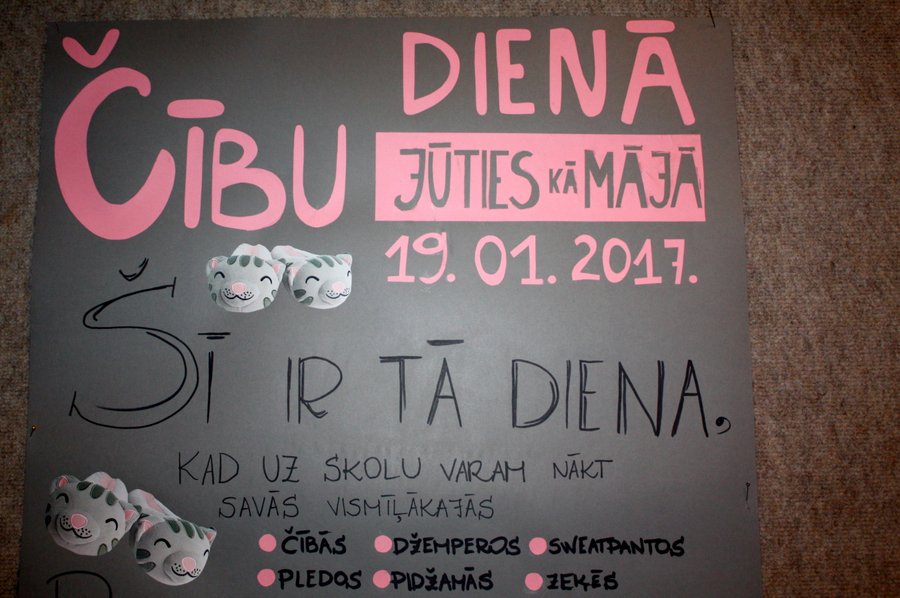 ČĪBU DIENĀ
JŪTIES KĀ MĀJĀ
19. 01. 2017.
ŠĪ IR TĀ DIENA,
KAD UZ SKOLU VARAM NĀKT
SAVĀS VISMĪĻĀKAJĀS
ČĪBĀS DŽEMPEROS SWEATPANTOS
PLEDOS PIDŽAMĀS ZEĶĒS